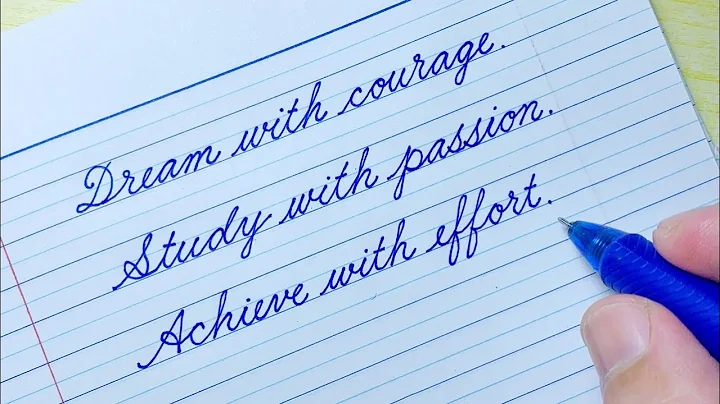 Dream with courage.
Study with passion.
Achieve with effort.